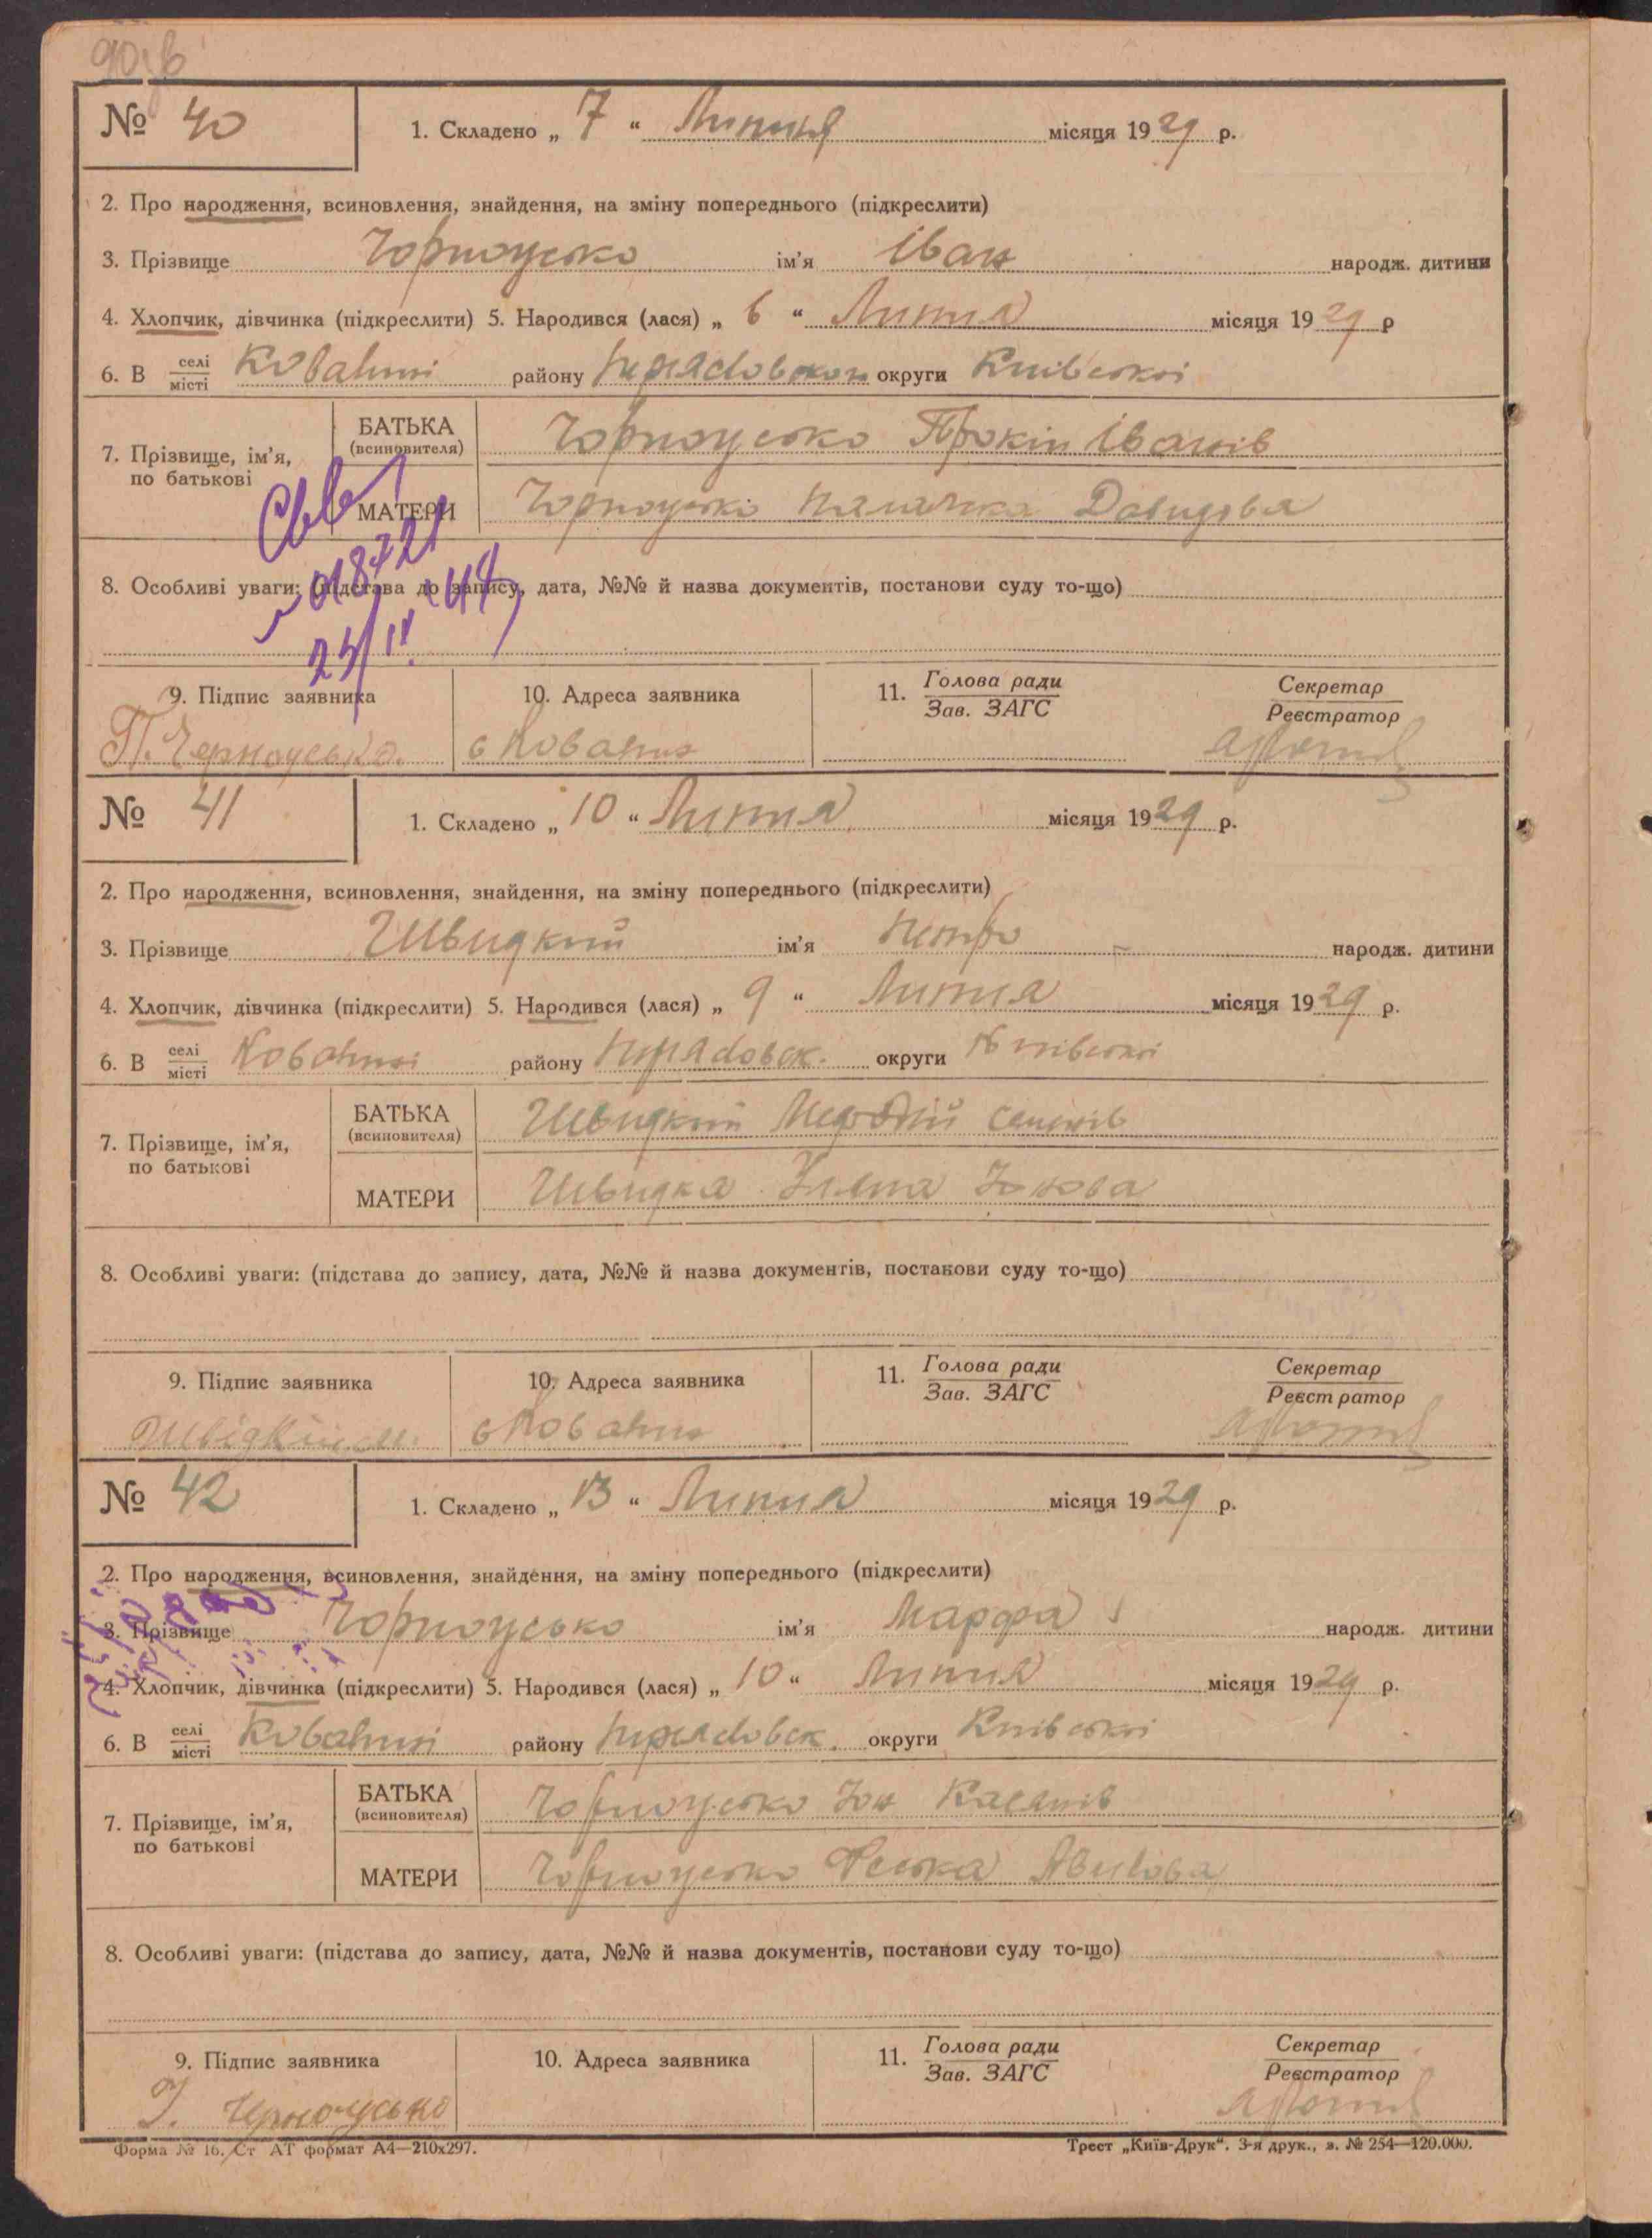 90 зв
№ 40
1. Складено „ 7 “ Липня місяця 1929 р.
2. Про народження, всиновлення, знайдення, на зміну попереднього (підкреслити)
3. Прізвище Чорноусько ім'я Іван народж. дитини
4. Хлопчик, дівчинка (підкреслити) 5. Народився (лася) „ 6 “ Липня місяця 1929 р
6. В селі місті Ковалині району округи Київської
7. Прізвище, ім'я, по батькові
БАТЬКА (всиновителя) Чорноусько Прокіп Іванів
МАТЕРИ Чорноусько Палажка Давидова
8. Особливі уваги: (підстава до запису, дата, №№ й назва документів, постанови суду то-що)
9. Підпис заявника
10. Адреса заявника
11. Голова ради Зав. ЗАГС
Секретар Реєстратор
П. Черноусько. с Ковалин
№ 41
1. Складено „ 10 “ Липня місяця 1929 р.
2. Про народження, всиновлення, знайдення, на зміну попереднього (підкреслити)
3. Прізвище Швидкий ім'я Петро народж. дитини
4. Хлопчик, дівчинка (підкреслити) 5. Народився (лася) „ 9 “ Липня місяця 1929 р.
6. В селі місті Ковалині району округи Київської
7. Прізвище, ім'я, по батькові
БАТЬКА (всиновителя) Швидкий Мефодій Семенів
МАТЕРИ Швидка Уляна
8. Особливі уваги: (підстава до запису, дата, №№ й назва документів, постанови суду то-що)
9. Підпис заявника
10. Адреса заявника
11. Голова ради Зав. ЗАГС
Секретар Реєстратор
Швідкій м. с Ковалин
№ 42
1. Складено „ 13 “ Липня місяця 1929 р.
2. Про народження, всиновлення, знайдення, на зміну попереднього (підкреслити)
3. Прізвище Чорноусько ім'я Марфа народж. дитини
4. Хлопчик, дівчинка (підкреслити) 5. Народився (лася) „ 10 “ Липня місяця 1929 р.
6. В селі місті Ковалині району округи Київської
7. Прізвище, ім'я, по батькові
БАТЬКА (всиновителя) Чорноусько Касянів
МАТЕРИ Чорноусько Феська
8. Особливі уваги: (підстава до запису, дата, №№ й назва документів, постанови суду то-що)
9. Підпис заявника
10. Адреса заявника
11. Голова ради Зав. ЗАГС
Секретар Реєстратор
Черноусько
Форма № 16. Ст АТ формат А4—210х297.
Трест „Київ-Друк“. 3-я друк., з. № 254—120.000.